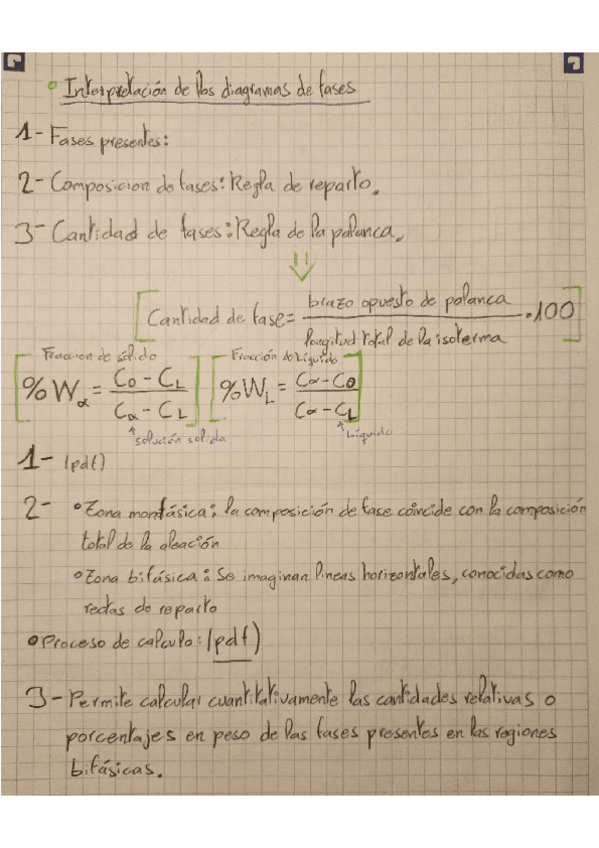 Interpretación de los diagramas de fases
1- Fases presentes:
2- Composicion de fases: Regla de reparto.
3- Cantidad de fases: Regla de la palanca.
Cantidad de fase = brazo opuesto de palanca / longitud total de la isoterma · 100
Fraccion de sólido
%Wα = C0 - CL / Cα - CL
solución solida
Fracción de líquido
%WL = Cα - C0 / Cα - CL
Líquido
1- (pdf)
2- • Zona monofásica: la composición de fase coincide con la composición
total de la aleación
• Zona bifásica: Se imaginan líneas horizontales, conocidas como
rectas de reparto
• Proceso de calculo: (pdf)
3- Permite calcular cuantitativamente las cantidades relativas o
porcentajes en peso de las fases presentes en las regiones
bifásicas.